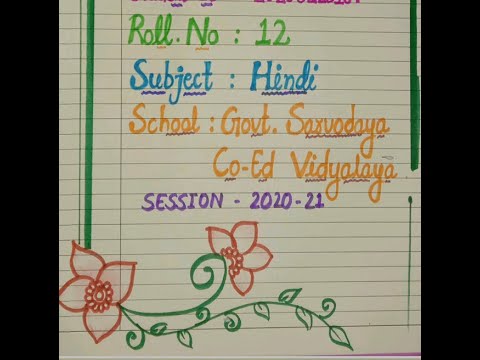 Roll. No : 12
Subject : Hindi
School : Govt. Sarvodaya
Co-Ed Vidyalaya
SESSION - 2020-21